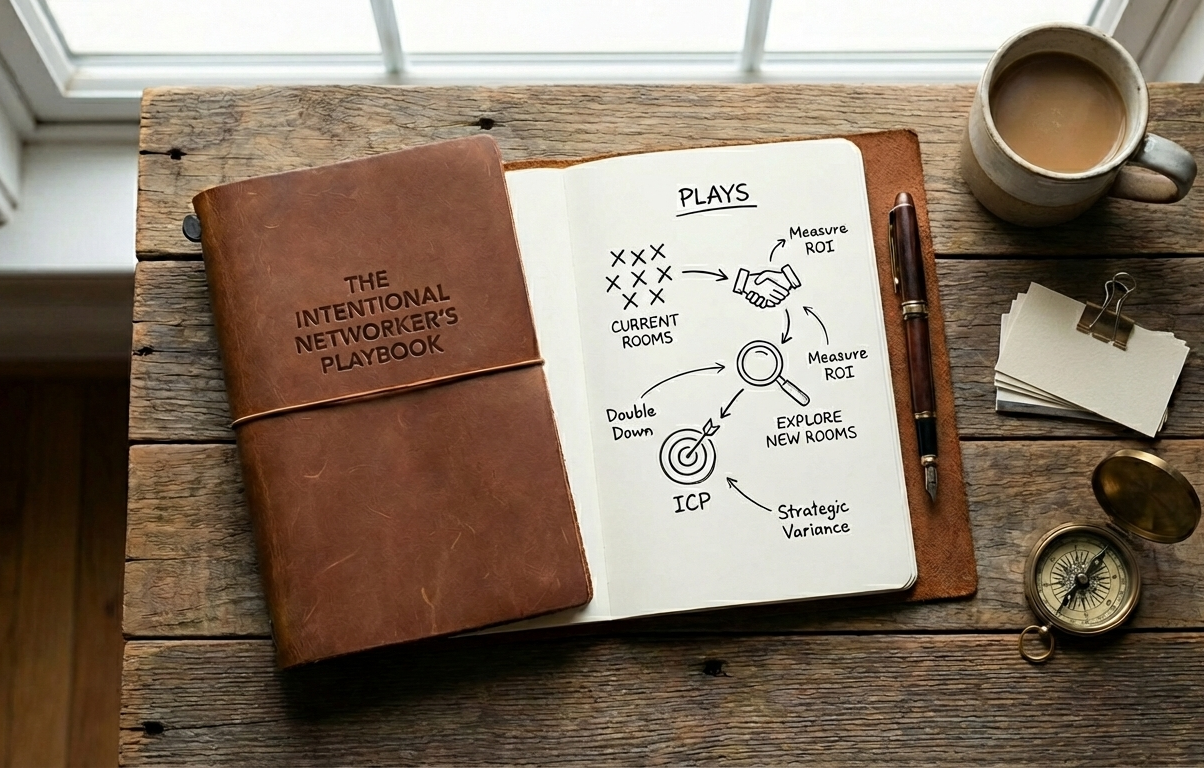 THE
INTENTIONAL
NETWORKER'S
PLAYBOOK
PLAYS
Measure
ROI
CURRENT
ROOMS
Measure
ROI
Double
Down
EXPLORE
NEW ROOMS
ICP
Strategic
Variance